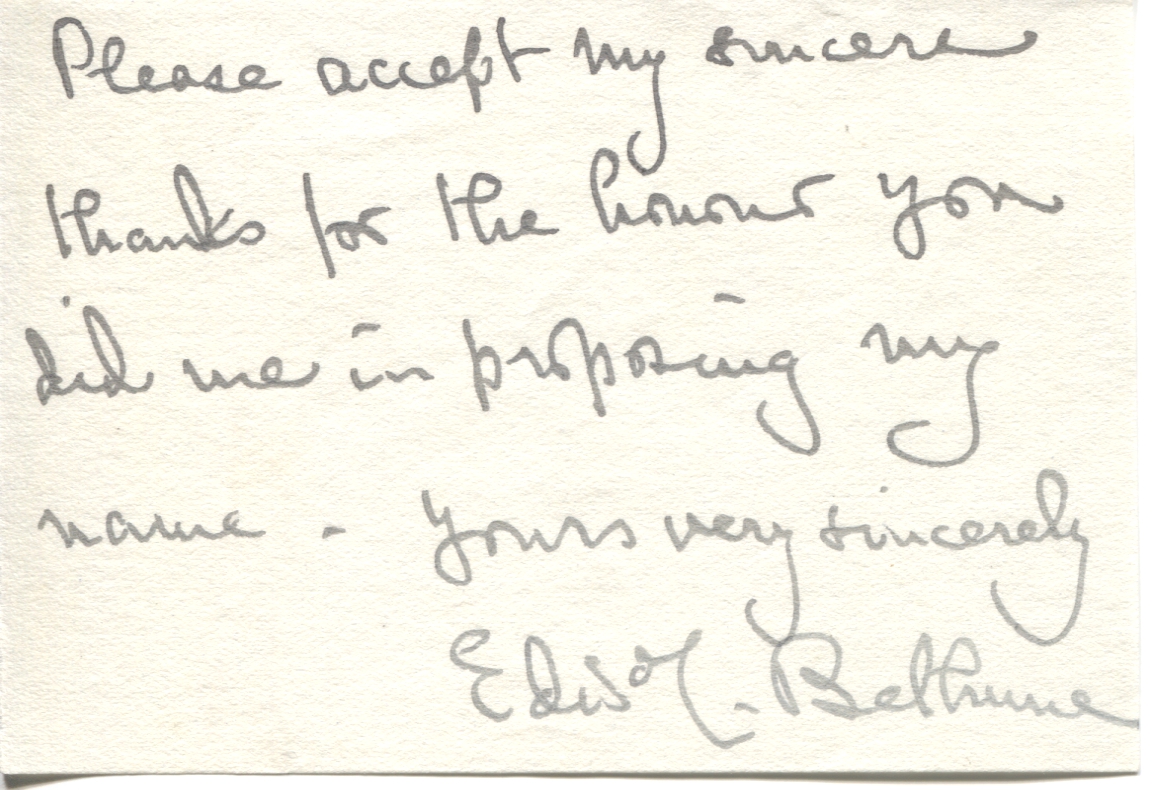 Please accept my sincere
thanks for the honour you
did me in proposing my
name - Yours very sincerely
Edwd C. Bethune